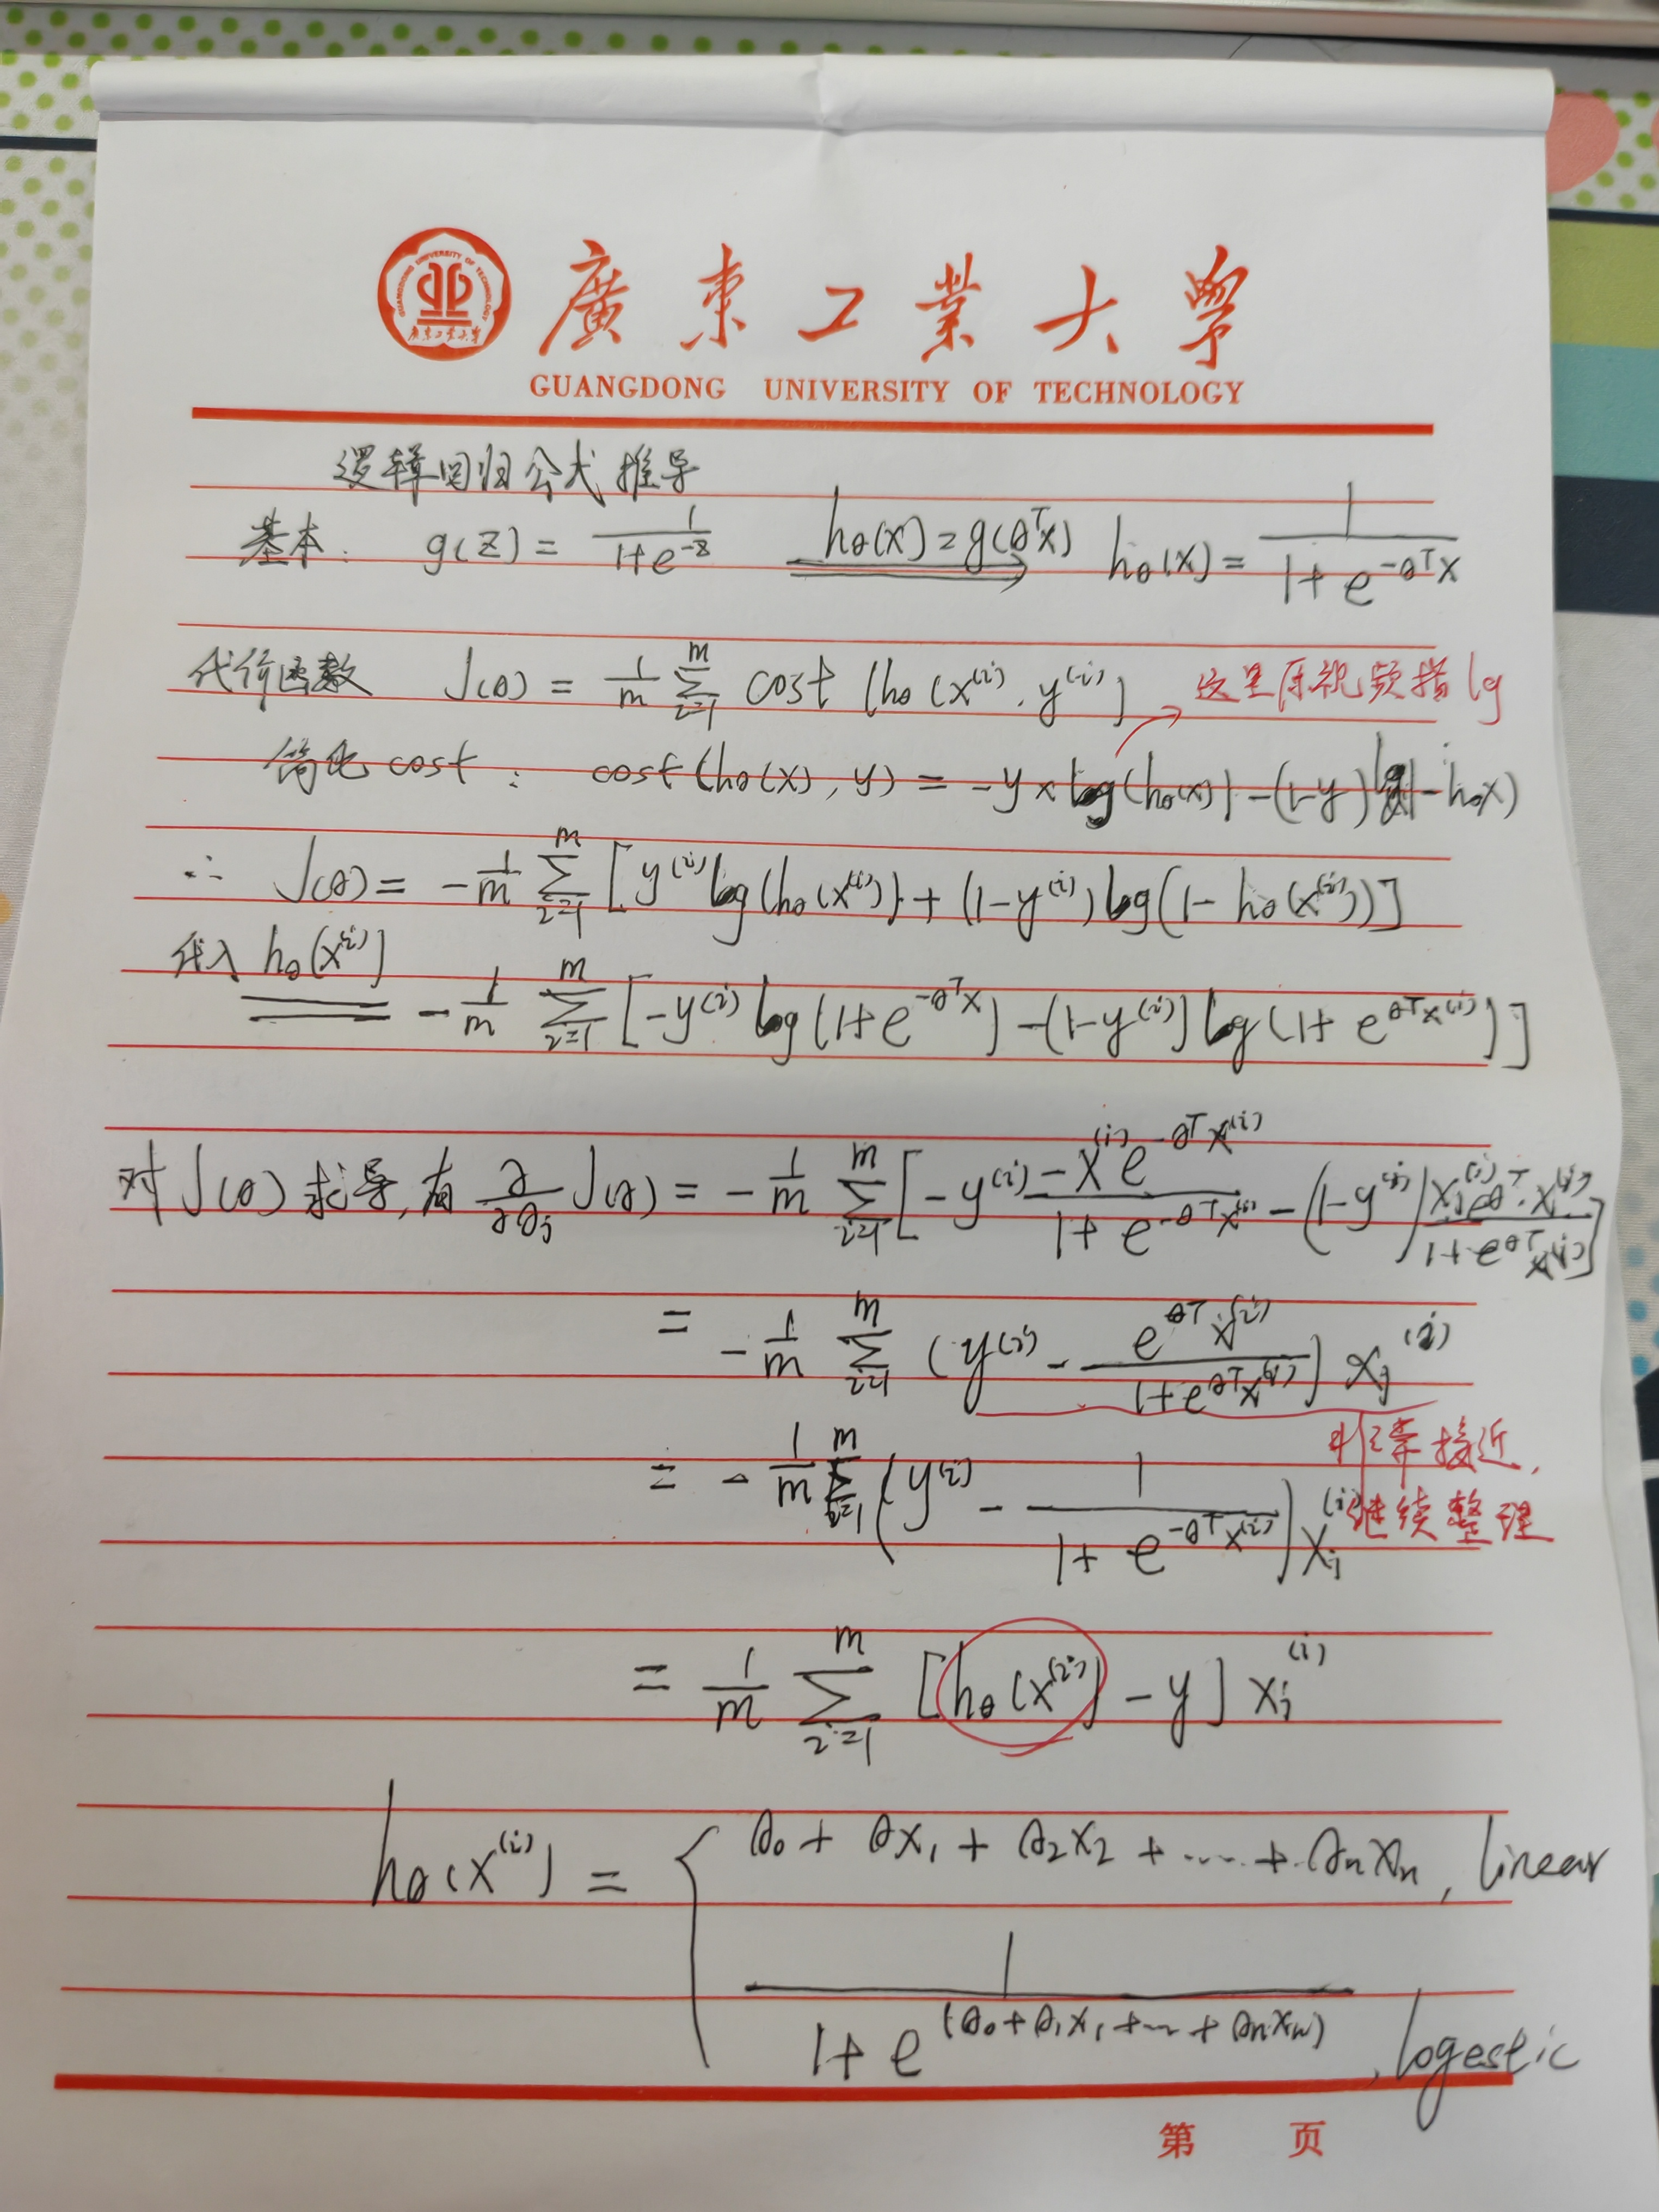 廣東工業大學
GUANGDONG UNIVERSITY OF TECHNOLOGY
逻辑回归公式推导
基本: g(z) = 1/(1+e^{-z}) h_θ(x)=g(θ^T x) ⟹ h_θ(x) = 1/(1+e^{-θ^T x})
代价函数 J(θ) = 1/m ∑_{i=1}^{m} cost (h_θ(x^{(i)}, y^{(i)}) 这里原视频指 lg
简化cost: cost(h_θ(x), y) = -y × log(h_θ(x)) -(1-y) log(1-h_θ x)
∴ J(θ) = -1/m ∑_{i=1}^{m} [y^{(i)} log(h_θ(x^{(i)})) + (1-y^{(i)}) log(1-h_θ(x^{(i)}))]
代入 h_θ(x^{(i)})
= -1/m ∑_{i=1}^{m} [-y^{(i)} log(1+e^{-θ^T x}) -(1-y^{(i)}) log(1+e^{θ^T x^{(i)}})]
对J(θ)求导,有 ∂/∂θ_j J(θ) = -1/m ∑_{i=1}^{m} [-y^{(i)} (-x^{(i)} e^{-θ^T x^{(i)}})/(1+e^{-θ^T x^{(i)}}) -(1-y^{(i)}) (x_j^{(i)} e^{θ^T·x^{(i)}})/(1+e^{θ^T x^{(i)}})]
= -1/m ∑_{i=1}^{m} (y^{(i)} - e^{θ^T x^{(i)}}/(1+e^{θ^T x^{(i)}})) x_j^{(i)}
非常接近,
继续整理
= -1/m ∑_{i=1}^{m} (y^{(i)} - 1/(1+e^{-θ^T x^{(i)}})) x_j^{(i)}
= 1/m ∑_{i=1}^{m} [h_θ(x^{(i)}) - y] x_j^{(i)}
h_θ(x^{(i)}) = { θ_0 + θx_1 + θ_2x_2 + ... + θ_nx_n, linear
1/(1+e^{(θ_0+θ_1x_1+...+θ_nx_n)}), logestic
第 页